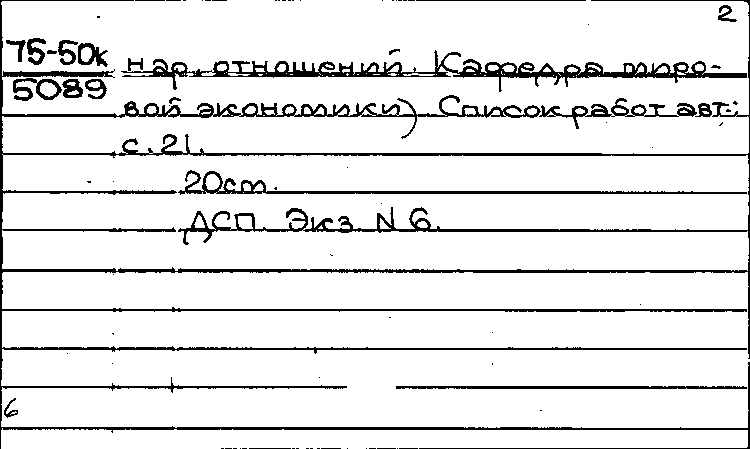 2
75-50к
5089
нар. отношений. Кафедра миро-
вой экономики) Список работ авт.:
с. 21.
20см.
ДСП. Экз. N 6.
6